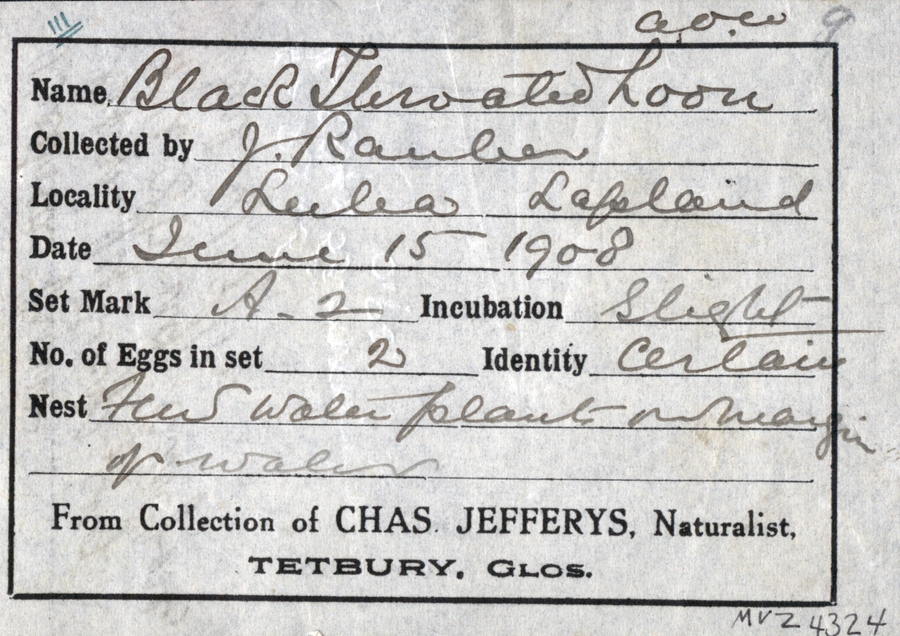 III
a.o.u 9
Name Black Throated Loon
Collected by J. Rauber
Locality Lulea Lapland
Date June 15 1908
Set Mark A-2 Incubation Slight
No. of Eggs in set 2 Identity Certain
Nest Few water plants on margin
of water
From Collection of CHAS. JEFFERYS, Naturalist,
TETBURY, GLOS.
MVZ 4324